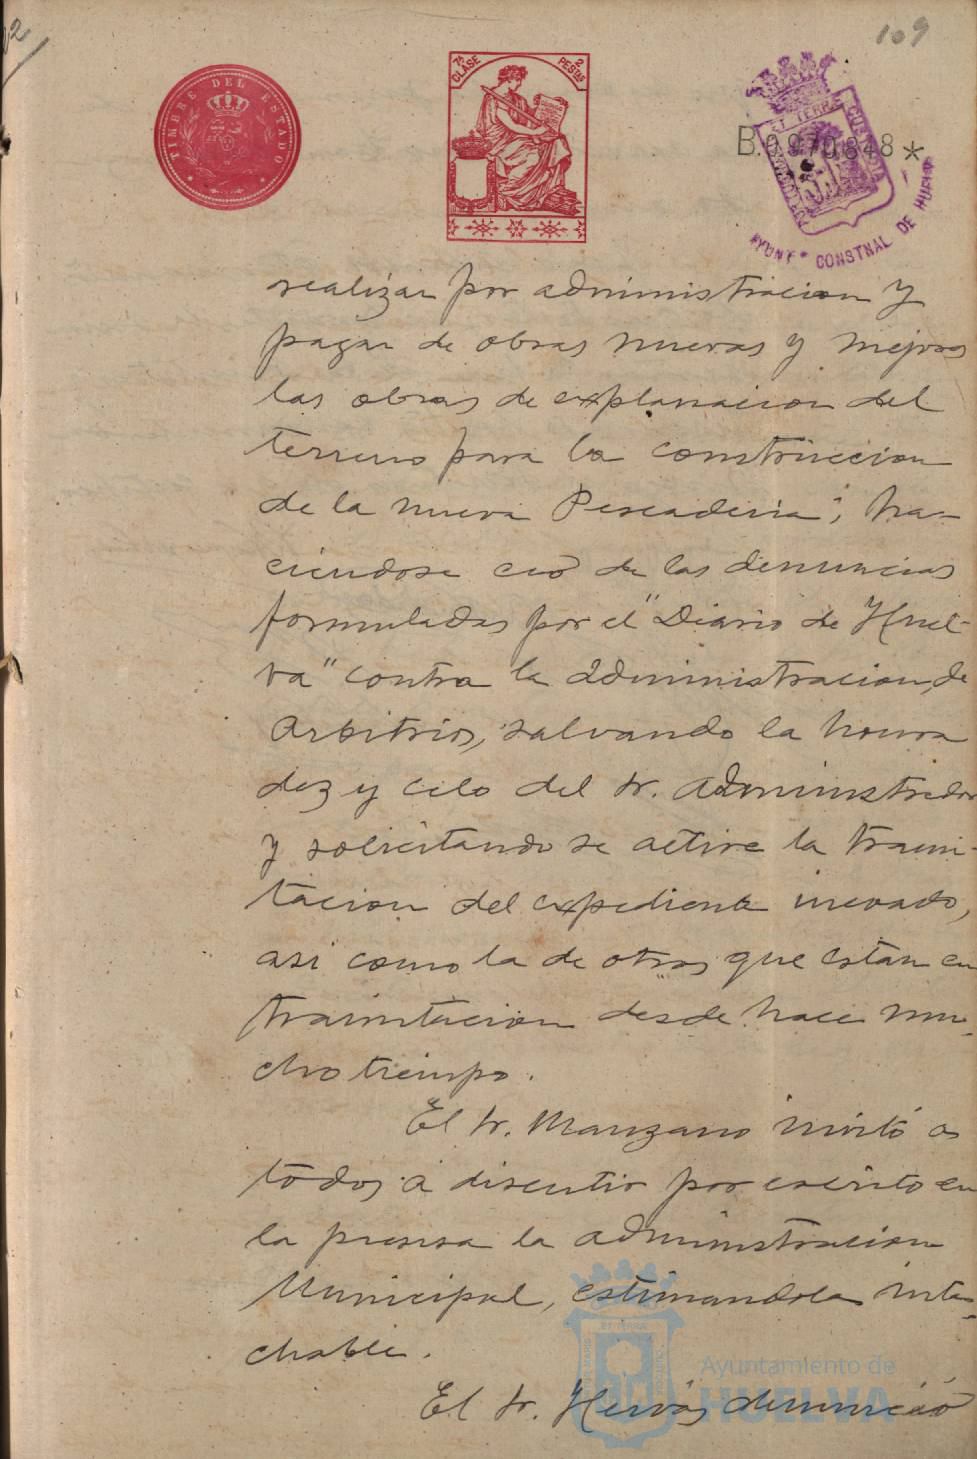 109
TIMBRE DEL ESTADO
7ª CLASE 2 PESTAS
B.0.970.848*
AYUNTº CONSTNAL DE HUELVA
realizar por administracion y
pagar de obras nuevas y mejoras
las obras de explanacion del
terreno para la construccion
de la nueva Pescaderia; ha-
ciendose eco de las denuncias
formuladas por el "Diario de Huel-
va" contra la administracion de
Arbitrios, salvando la honra
dez y celo del Sr. Administrador
y solicitando se active la trami-
tacion del expediente incoado,
asi como la de otros que estan en
tramitacion desde hace mu-
cho tiempo.
El Sr. Manzano invitó a
todos á discutir por escrito en
la prensa la administracion
Municipal, estimandola inta-
chable.
El Sr. Hervás denunció
Ayuntamiento de
HUELVA